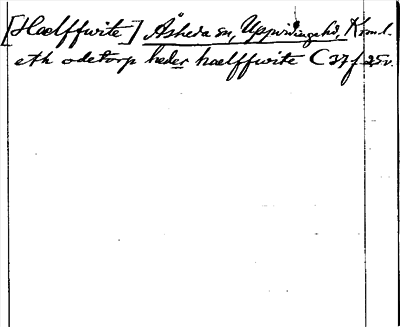 [Haelffwite] Åsheda sn, Uppvidinge hd, Kron.l.
eth ödetorp heder haelffwite C 27 f 25v.